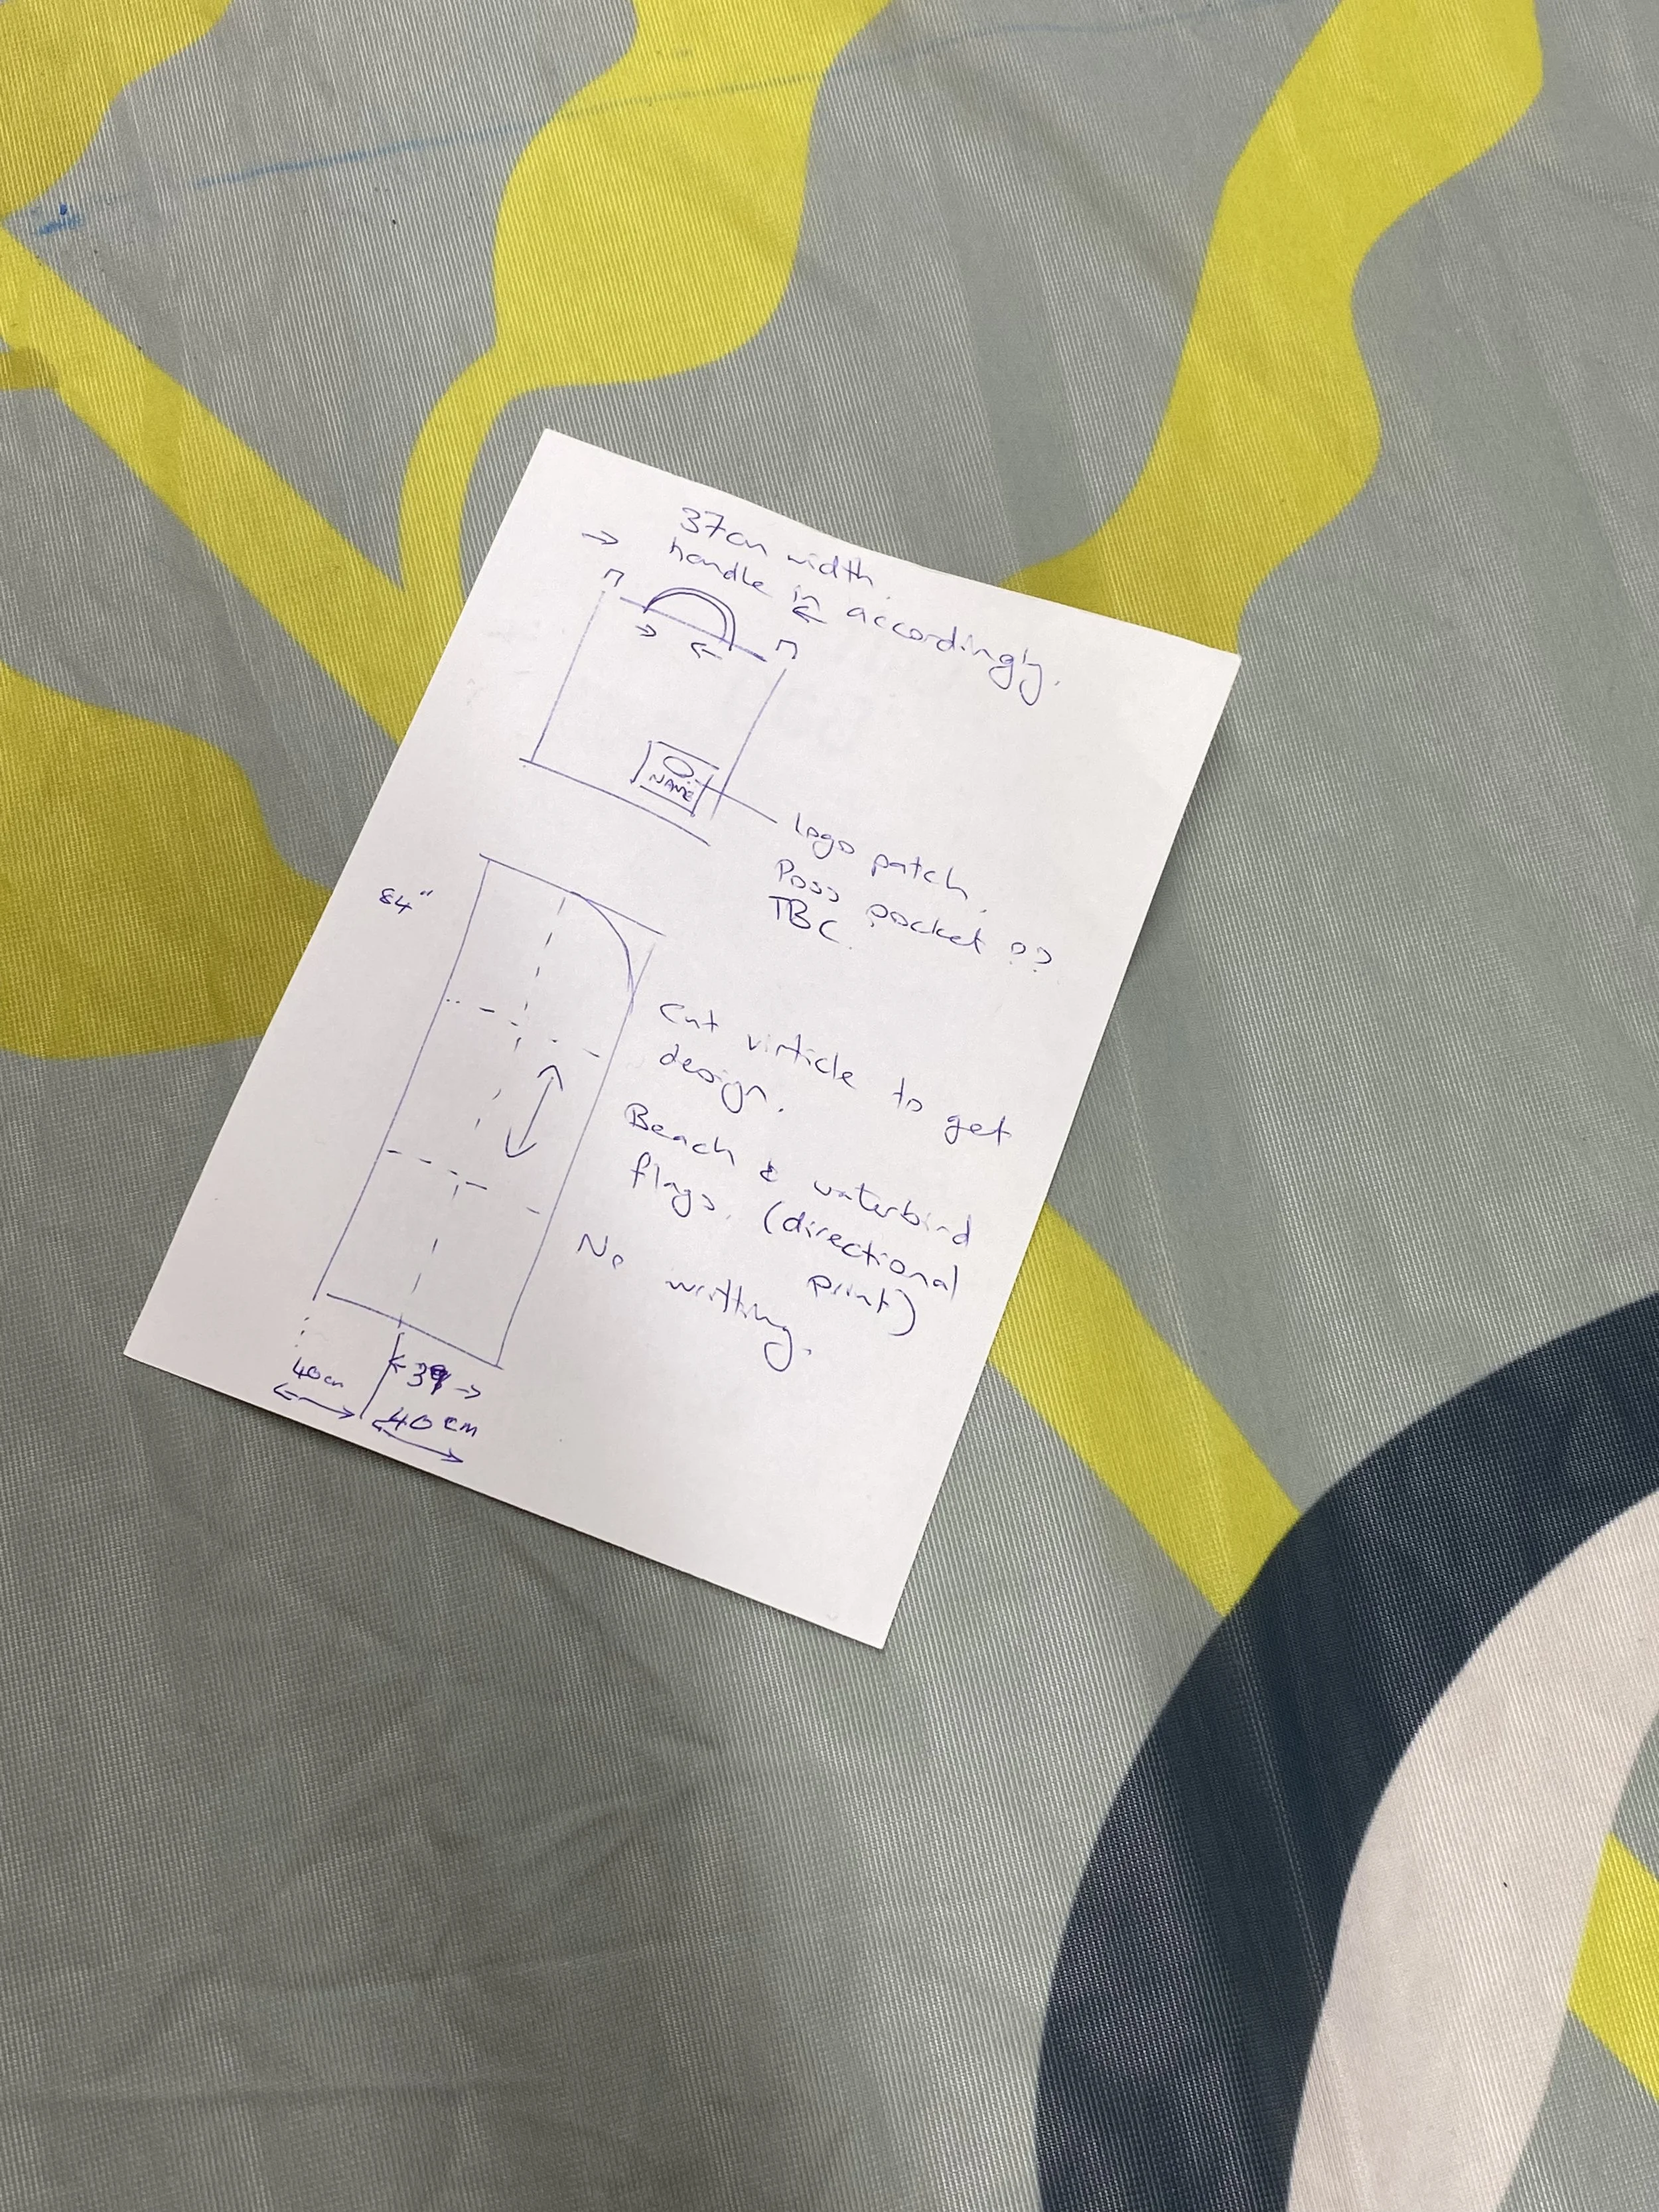 37cm width.
handle in accordingly.
NAME
Logo patch.
Poss pocket ??
TBC.
84"
Cut virticle to get
design.
Beach & waterbird
flags. (directional
print)
No writting.
40cm
40cm